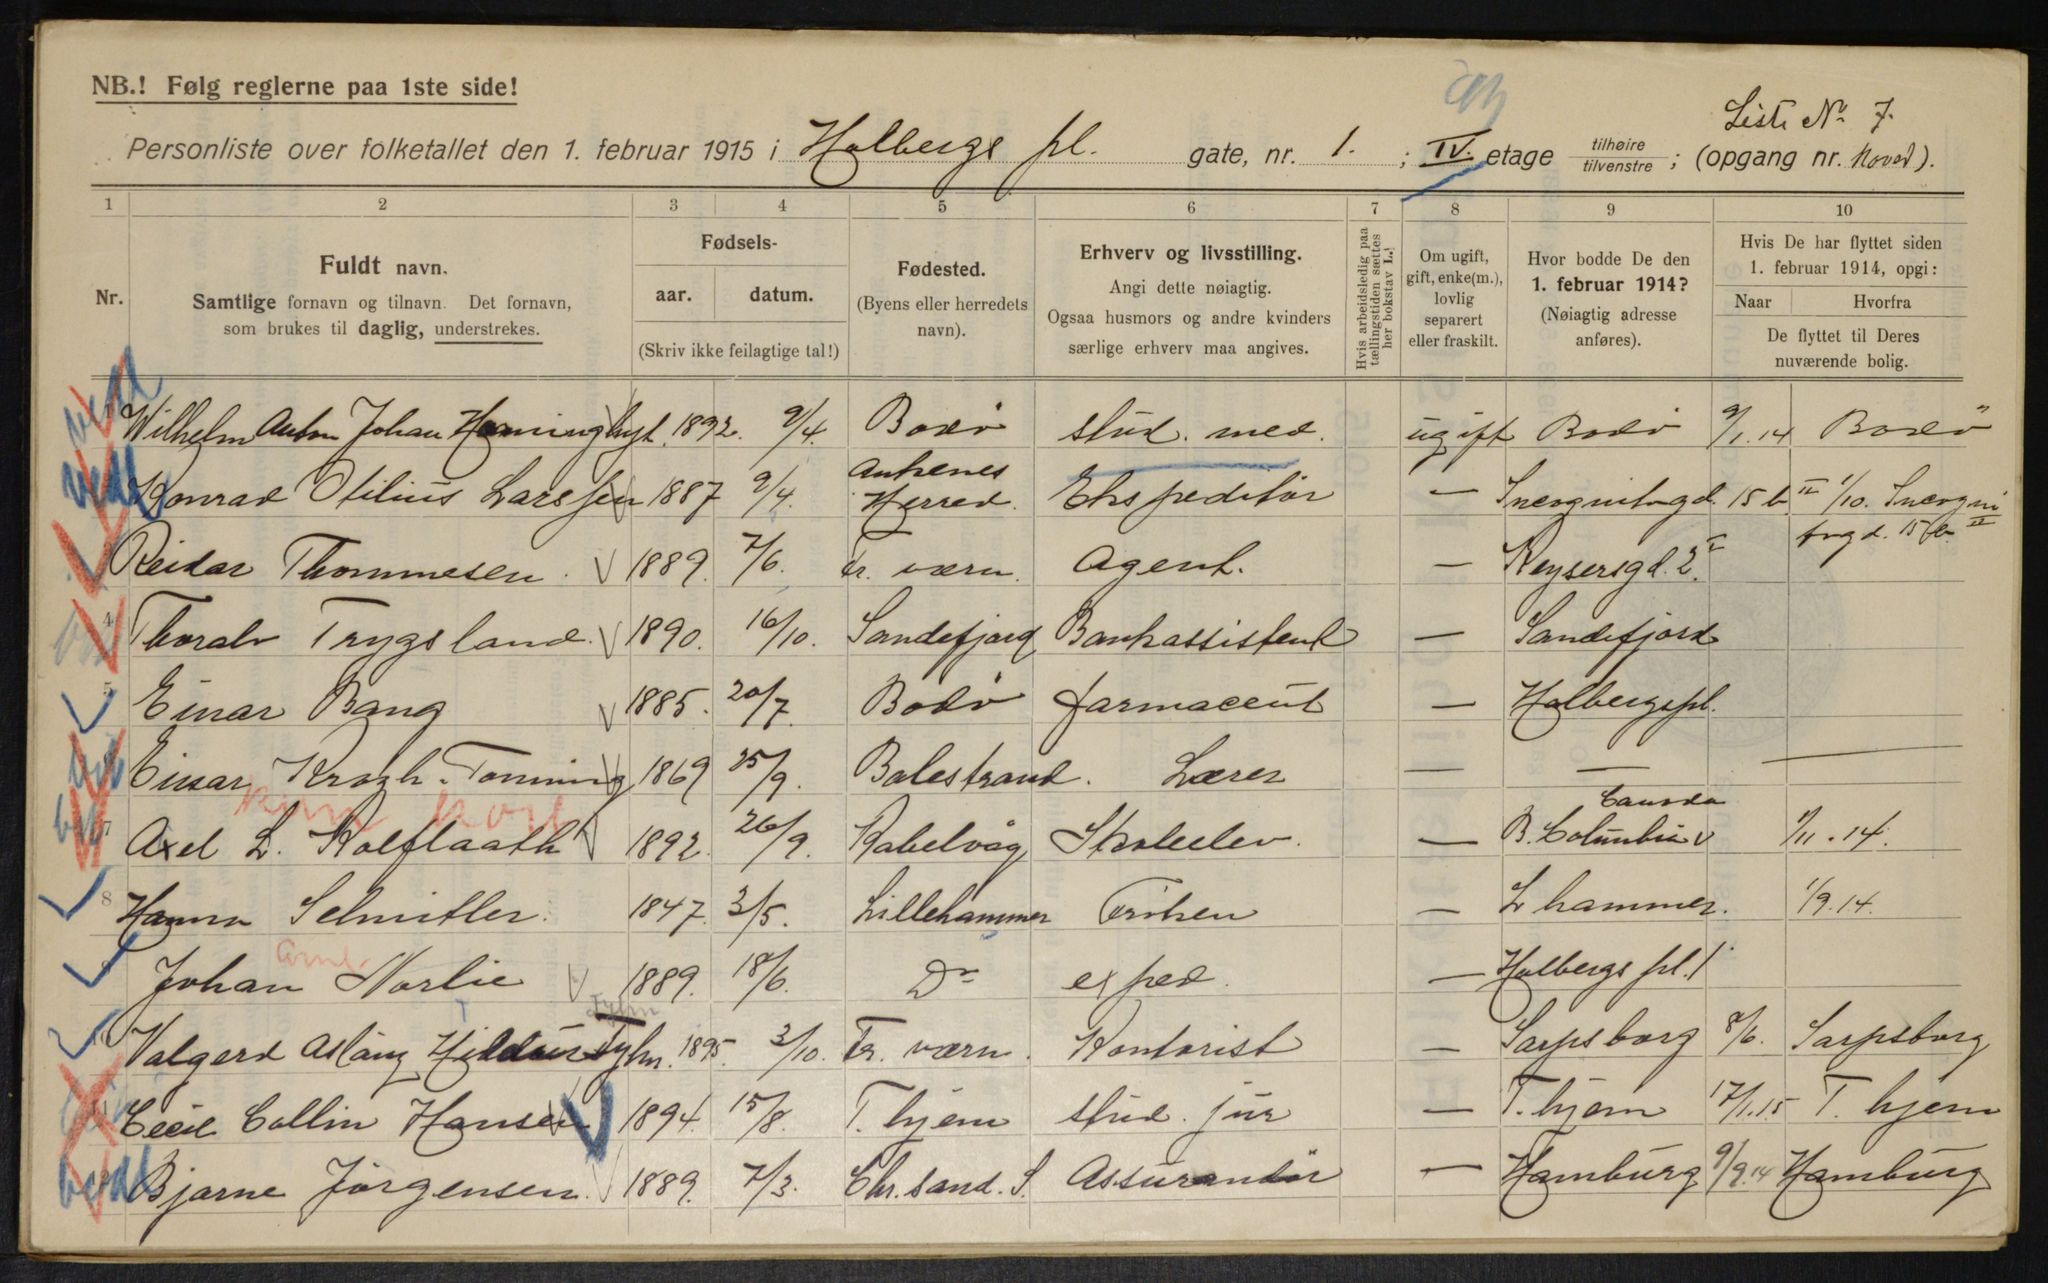 NB.! Følg reglerne paa 1ste side!
Liste No 7.
Personliste over folketallet den 1. februar 1915 i Holbergs pl. gate, nr. 1. ; IV. etage tilhøire / tilvenstre ; (opgang nr. Hoved).
1 2 3 4 5 6 7 8 9 10
Nr.
Fuldt navn.
Samtlige fornavn og tilnavn. Det fornavn,
som brukes til daglig, understrekes.
Fødsels-
aar. datum.
(Skriv ikke feilagtige tal!)
Fødested.
(Byens eller herredets
navn).
Erhverv og livsstilling.
Angi dette nøiagtig.
Ogsaa husmors og andre kvinders
særlige erhverv maa angives.
Hvis arbeidsledig paa
tællingstiden sættes
her bokstav L.
Om ugift,
gift, enke(m.),
lovlig
separert
eller fraskilt.
Hvor bodde De den
1. februar 1914?
(Nøiagtig adresse
anføres).
Hvis De har flyttet siden
1. februar 1914, opgi:
Naar Hvorfra
De flyttet til Deres
nuværende bolig.
1 Wilhelm Anton Johan 1892. 9/4 Bodø stud. med. ugift Bodø 9/1.14 Bodø
Konrad Otilius Larssen 1887 9/4. Ankenes Herred. Ekspeditør — 15 b II 1/10.
15 b. II
Reidar Thommesen. 1889. 7/6. Tr. værn. Agent. — Keysersgd. 2. I
4 Thoralv Trygsland. 1890. 16/10. Sandefjord Bankassistent — Sandefjord
5 Einar Bang 1885. 20/7. Bodø farmaceut — Holbergspl.
Einar Krogh-Tonning 1869 25/9. Balestrand. Lærer — —
7 Axel L. Kolflaath 1892. 26/9. Kabelvåg Skoleelev. — Canada B. Columbia 1/11.14.
8 Hanna Schnitler. 1847. 3/5. Lillehammer Frøken — L hammer. 1/9.14.
9 Johan Norlie 1889. 18/6. Do exped. — Holbergs pl. 1
Arne.
10 Valgerd Aslaug Hildur 1895. 3/10. Tr. værn. Kontorist — Sarpsborg 8/6. Sarpsborg
11 Cecil Collin Hansen 1894. 15/8. T. hjem stud. jur — T. hjem 17/1.15 T. hjem
12 Bjarne Jørgensen. 1889. 7/3. Chr. sand. S. Assurandør — Hamburg 9/9.14 Hamburg